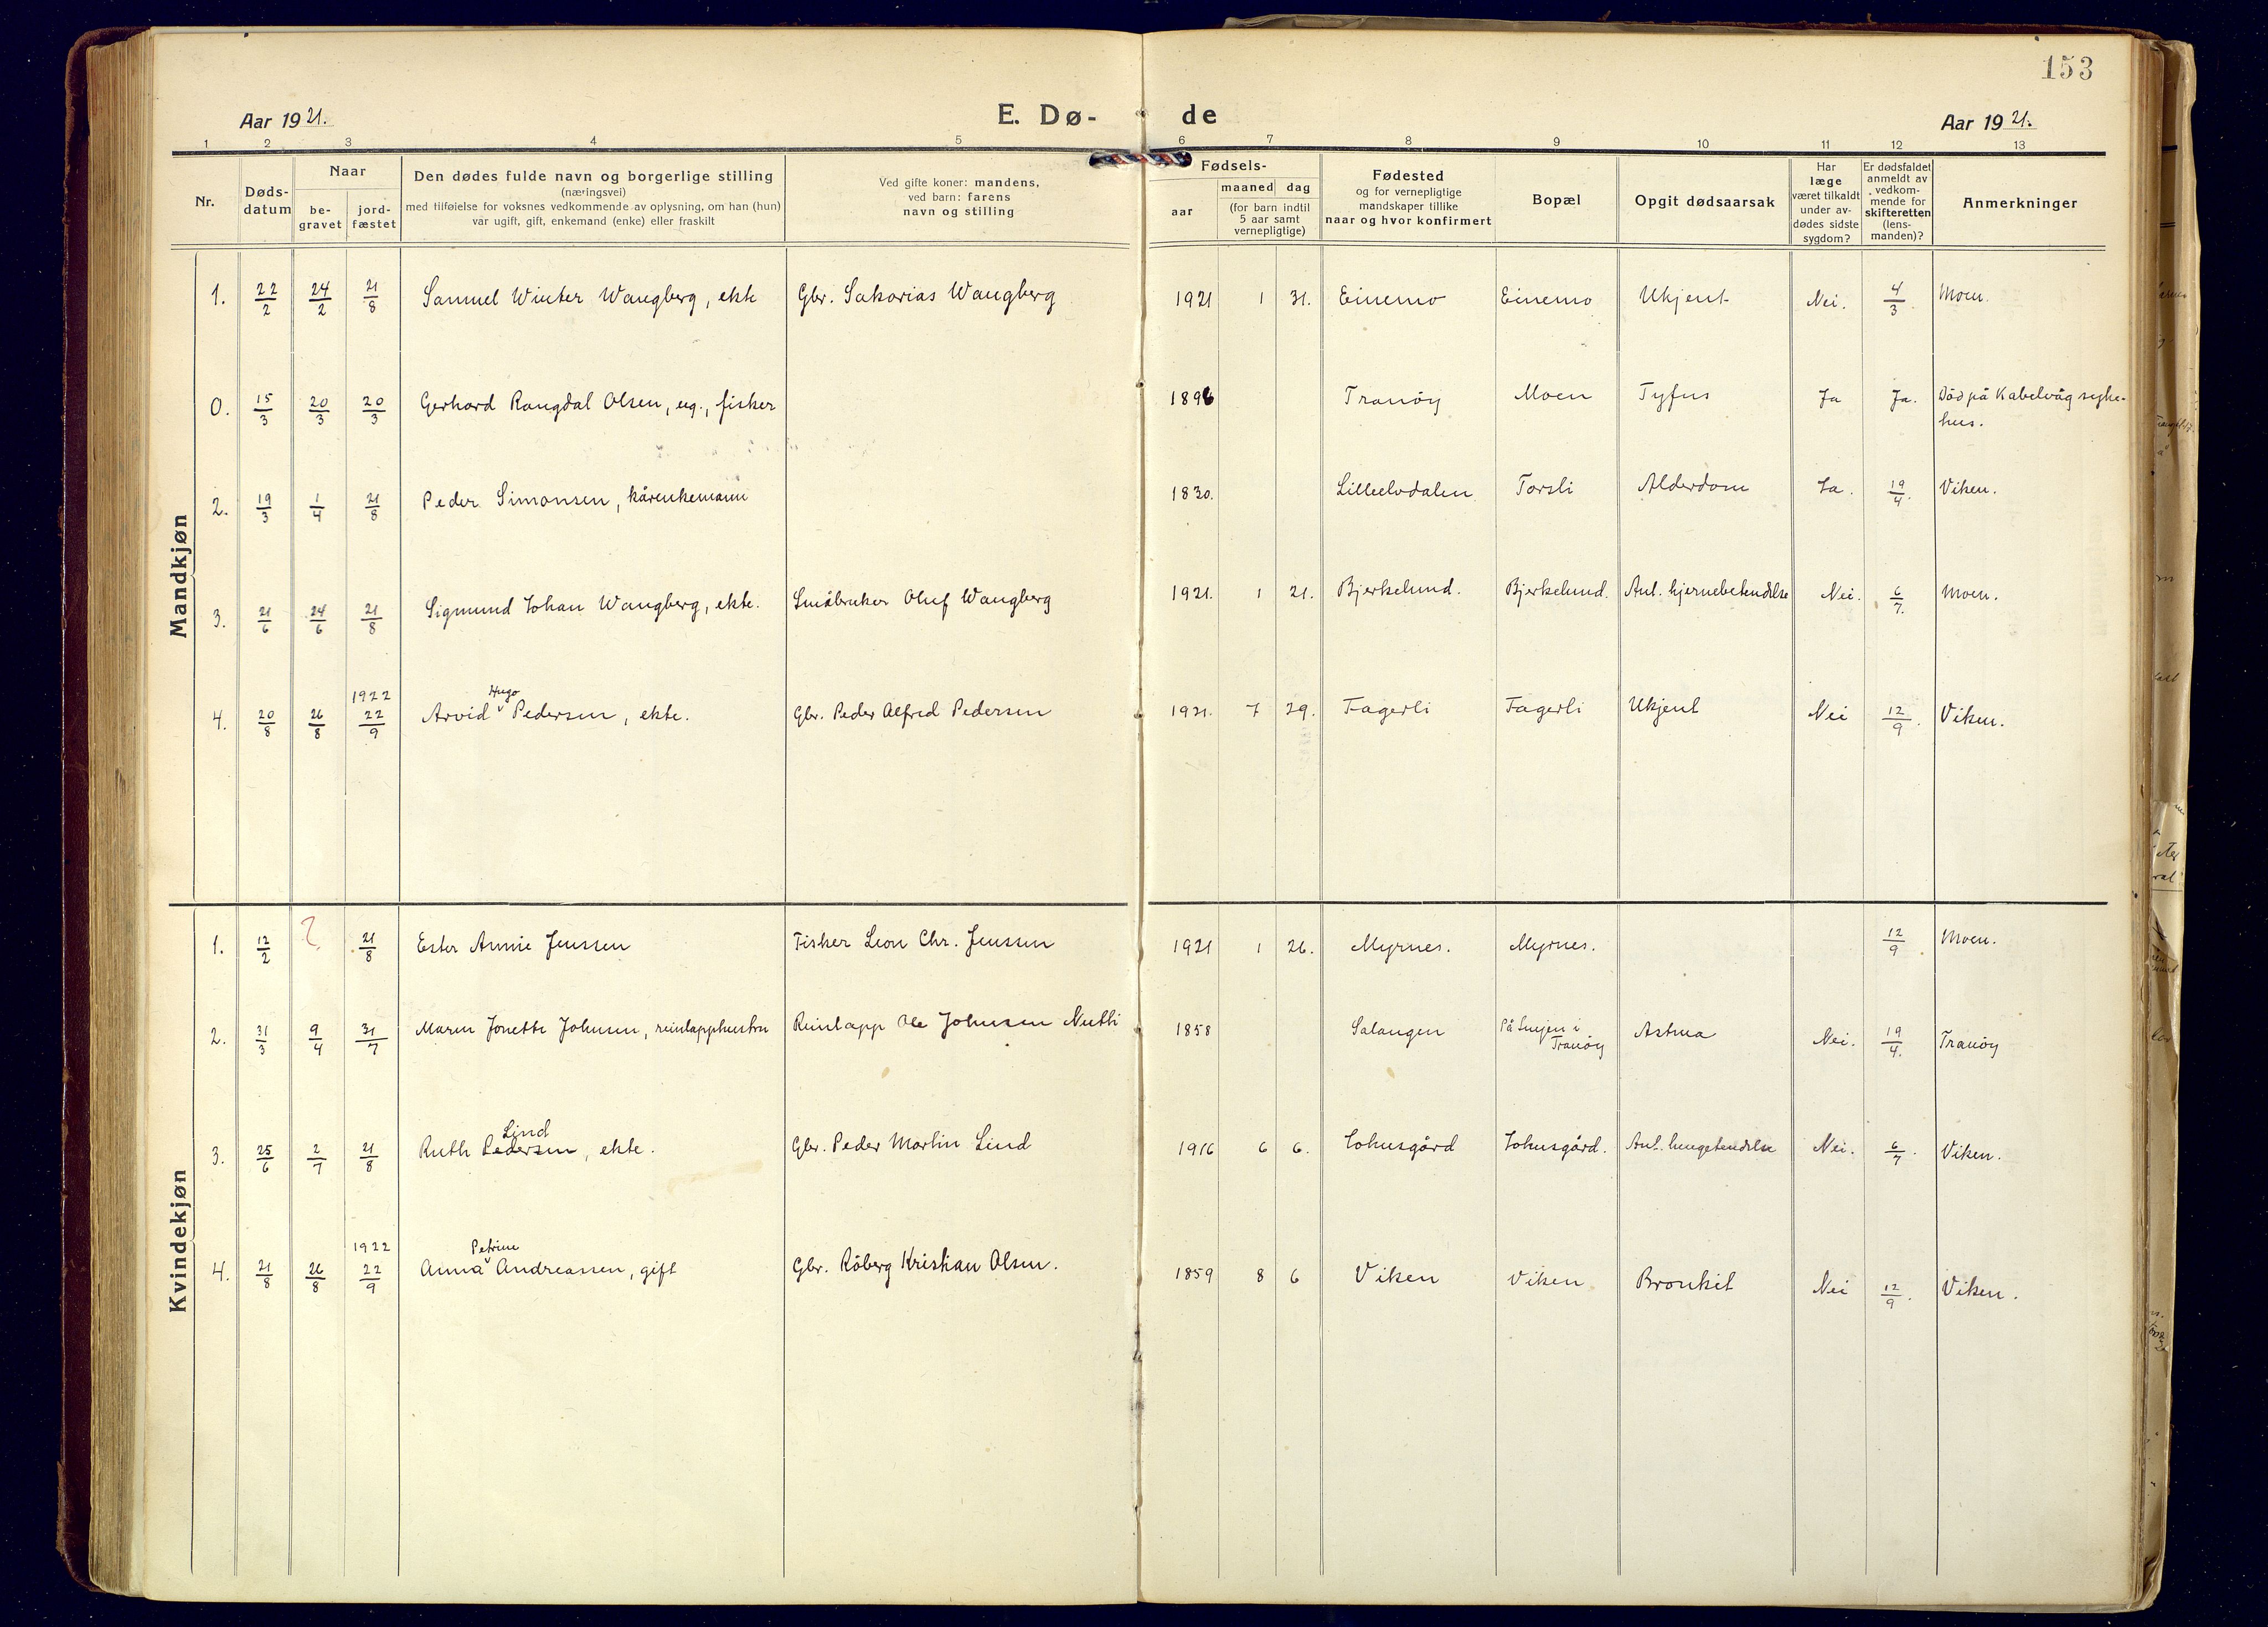 153
Aar 1921.
E. Dø- de
Aar 1921.
1 2 3 4 5 6 7 8 9 10 11 12 13
Nr.
Døds-
datum
Naar
be-
gravet
jord-
fæstet
Den dødes fulde navn og borgerlige stilling
(næringsvei)
med tilføielse for voksnes vedkommende av oplysning, om han (hun)
var ugift, gift, enkemand (enke) eller fraskilt
Ved gifte koner: mandens,
ved barn: farens
navn og stilling
Fødsels-
aar
maaned dag
(for barn indtil
5 aar samt
vernepligtige)
Fødested
og for vernepligtige
mandskaper tillike
naar og hvor konfirmert
Bopæl
Opgit dødsaarsak
Har
læge
været tilkaldt
under av-
dødes sidste
sygdom?
Er dødsfaldet
anmeldt av
vedkom-
mende for
skifteretten
(lens-
manden)?
Anmerkninger
Mandkjøn
1. 22/2 24/2 21/8 Samuel Winter Wangberg, ekte Gbr. Sakarias Wangberg 1921 1 31. Einemo Einemo Ukjent Nei. 4/3. Moen.
0. 15/3 20/3 20/3 Gerhard Rangdal Olsen, ug., fisker 1896 Tranöy Moen Tyfus Ja Ja. Död på Kabelvåg syke-
hus.
2. 19/3 1/4 21/8 Peder Simonsen, kårenkemann 1830. Lilleelvdalen Torsli Alderdom Ja. 19/4. Viken.
3. 21/6 24/6 21/8 Sigmund Johan Wangberg, ekte. Småbruker Oluf Wangberg 1921. 1 21. Bjerkelund. Bjerkelund. Ant. hjernebetendelse Nei. 6/7. Moen.
1922 Hugo
4. 20/8 26/8 22/9 Arvid Pedersen, ekte. Gbr. Peder Alfred Pedersen 1921. 7 29. Fagerli Fagerli Ukjent Nei 12/9. Viken.
Kvindekjøn
1. 12/2 ? 21/8 Ester Annie Jenssen Fisker Leon Chr. Jenssen 1921 1 26. Myrnes. Myrnes. 12/9 Moen.
2. 31/3 9/4 31/7 Maren Jonette Johnsen, reinlapphustru Reinlapp Ole Johnsen Nutti 1858 Salangen På Senjen i
Tranöy Astma Nei. 19/4. Tranöy
Lind
3. 25/6 2/7 21/8 Ruth Pedersen, ekte. Gbr. Peder Martin Lind 1916 6 6. Johusgård Johusgård. Ant. lungetendelse Nei. 6/7. Viken.
1922 Petrine
4. 21/8 26/8 22/9 Anna Andreassen, gift Gbr. Röberg Kristian Olsen. 1859 8 6 Viken Viken Bronkit Nei 12/9. Viken.